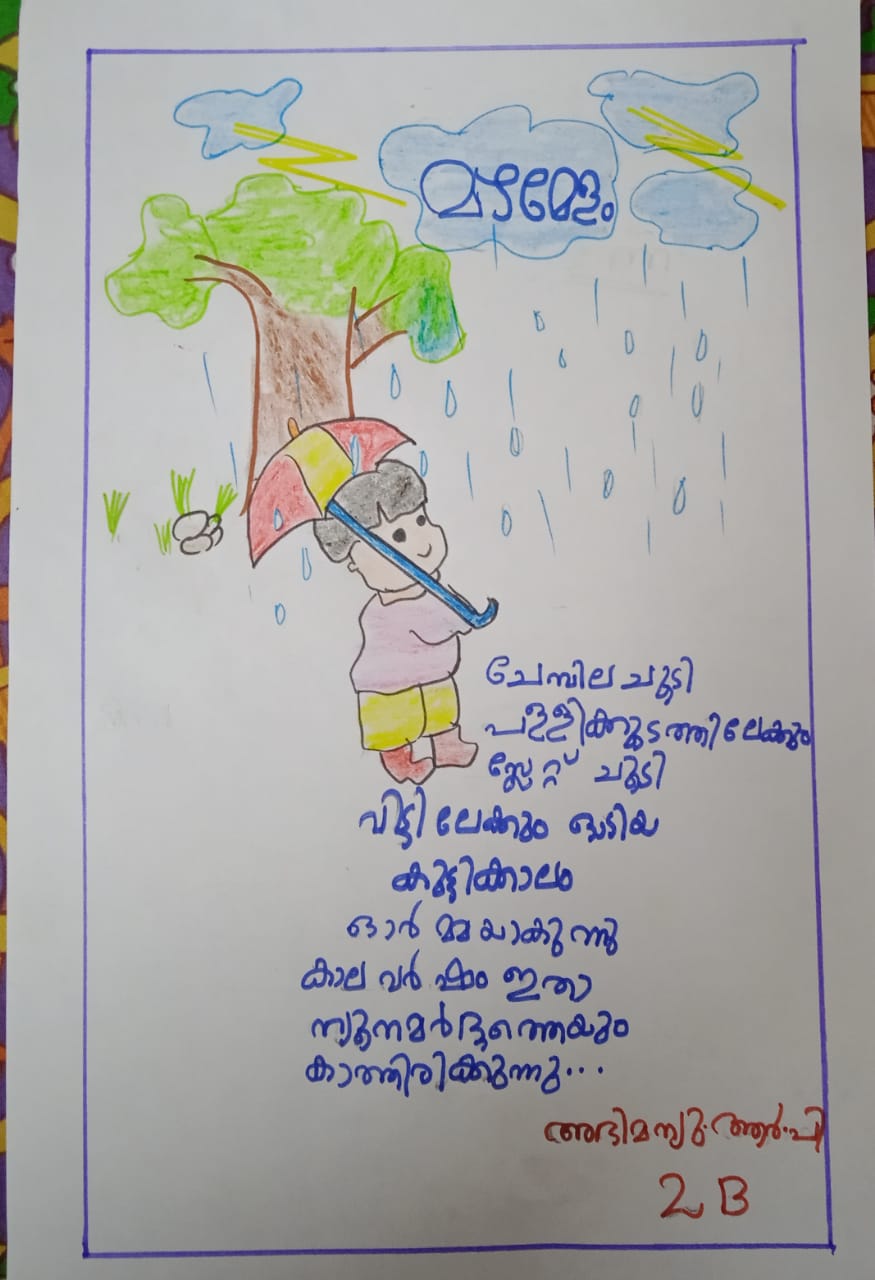 മഴമേളം
ചേമ്പില ചൂടി
പള്ളിക്കൂടത്തിലേക്കും
സ്ലേറ്റ് ചൂടി
വീട്ടിലേക്കും ഓടിയ
കുട്ടിക്കാലം
ഓർമ്മയാകുന്നു
കാലവർഷം ഇതാ
ന്യൂനമർദ്ദത്തെയും
കാത്തിരിക്കുന്നു...
അഭിമന്യു.ആർ.പി
2 B